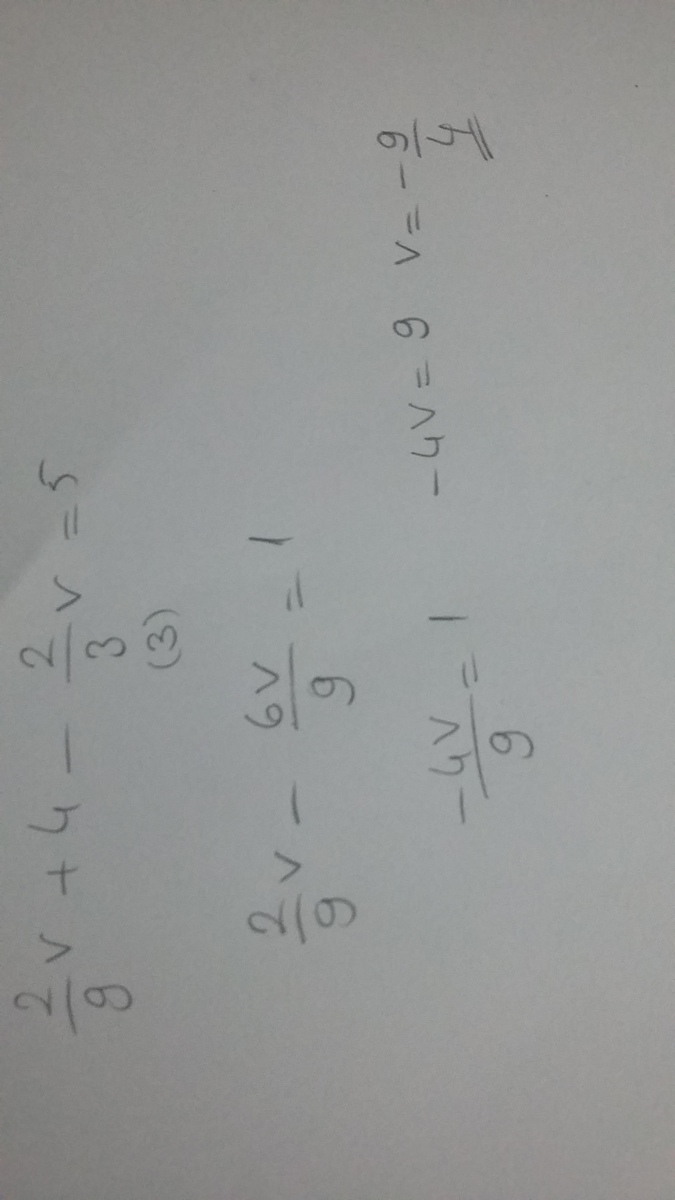 2/9 v + 4 - 2/3 v = 5
(3)
2/9 v - 6v/9 = 1
-4v/9 = 1 -4v = 9 v = -9/4